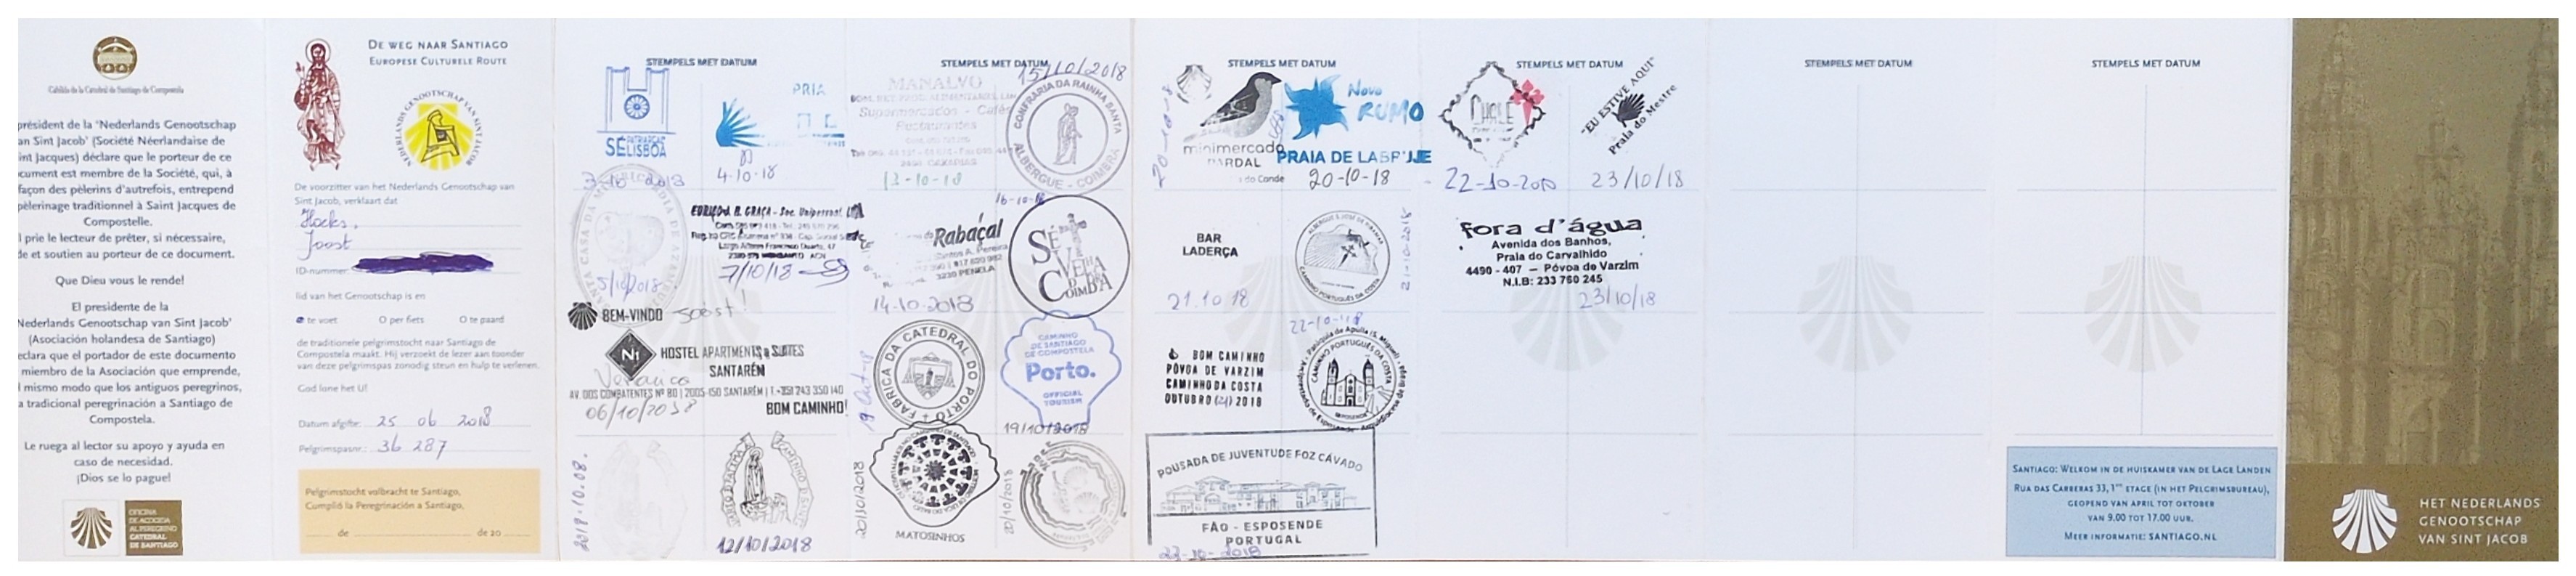 Cabildo de la Catedral de Santiago de Compostela
président de la 'Nederlands Genootschap
an Sint Jacob' (Société Néerlandaise de
int Jacques) déclare que le porteur de ce
cument est membre de la Société, qui, à
façon des pèlerins d'autrefois, entreprend
pèlerinage traditionnel à Saint Jacques de
Compostelle.
l prie le lecteur de prêter, si nécessaire,
de et soutien au porteur de ce document.
Que Dieu vous le rende!
El presidente de la
Nederlands Genootschap van Sint Jacob'
(Asociación holandesa de Santiago)
eclara que el portador de este documento
miembro de la Asociación que emprende,
l mismo modo que los antiguos peregrinos,
a tradicional peregrinación a Santiago de
Compostela.
Le ruega al lector su apoyo y ayuda en
caso de necesidad.
¡Dios se lo pague!
OFICINA
DE ACOGIDA
AL PEREGRINO
CATEDRAL
DE SANTIAGO
De weg naar Santiago
Europese Culturele Route
NEDERLANDS GENOOTSCHAP VAN SINT JACOB
De voorzitter van het Nederlands Genootschap van
Sint Jacob, verklaart dat
Hocks,
Joost
ID-nummer:
lid van het Genootschap is en
te voet O per fiets O te paard
de traditionele pelgrimstocht naar Santiago de
Compostela maakt. Hij verzoekt de lezer aan toonder
van deze pelgrimspas zonodig steun en hulp te verlenen.
God lone het U!
Datum afgifte: 25 06 2018
Pelgrimspasnr.: 36 287
Pelgrimstocht volbracht te Santiago,
Cumplió la Peregrinación a Santiago,
de de 20
STEMPELS MET DATUM
SÉ PATRIARCAL
LISBOA
PRIA
4-10-18
SANTA CASA DA MISERICÓRDIA DE AZAMBUJA
5/10/2018
7/10/18
BEM-VINDO Joost!
N1 HOSTEL APARTMENTS & SUITES
SANTARÉM
AV. DOS COMBATENTES Nº 80 | 2005-150 SANTARÉM | T. +351 243 350 140
06/10/2018
BOM CAMINHO!
2018.10.08.
12/10/2018
STEMPELS MET DATUM
15/10/2018
MANALVO
Supermercados - Cafés
Restaurantes
13-10-18
CONFRARIA DA RAINHA SANTA
ALBERGUE - COIMBRA
Rabaçal
3230 PENELA
14-10-2018
16-10-18
SÉ VELHA
D
COIMBRA
FABRICA DA CATEDRAL DO PORTO
CAMINHO
DE SANTIAGO
DE COMPOSTELA
Porto.
OFFICIAL
TOURISM
19/10/2018
20/10/2018
MATOSINHOS
20/10/2018
STEMPELS MET DATUM
20-10-18
minimercado
PARDAL
do Conde
Novo
RUMO
20-10-18
BAR
LADERÇA
21.10 18
CAMINHO PORTUGUÊS DA COSTA
21-10-2018
BOM CAMINHO
PÓVOA DE VARZIM
CAMINHO DA COSTA
OUTUBRO (21) 2018
22-10-18
CAMINHO PORTUGUÊS DA COSTA
POUSADA DE JUVENTUDE FOZ CÁVADO
FÃO - ESPOSENDE
PORTUGAL
22-10-2018
STEMPELS MET DATUM
"EU ESTIVE AQUI"
Praia do Mestre
23/10/18
fora d'água
Avenida dos Banhos,
Praia do Carvalhido
4490 - 407 — Póvoa de Varzim
N.I.B: 233 760 245
23/10/18
STEMPELS MET DATUM
STEMPELS MET DATUM
Santiago: Welkom in de huiskamer van de Lage Landen
Rua das Carreras 33, 1ste etage (in het Pelgrimsbureau),
geopend van april tot oktober
van 9.00 tot 17.00 uur.
Meer informatie: santiago.nl
Het Nederlands
Genootschap
van Sint Jacob